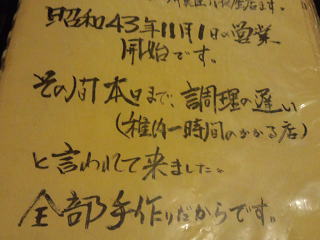 昭和43年11月1日の営業
開始です。
その間本日まで、調理の遅い
(稚内一時間のかかる店)
と言われて来ました。
全部手作りだからです。